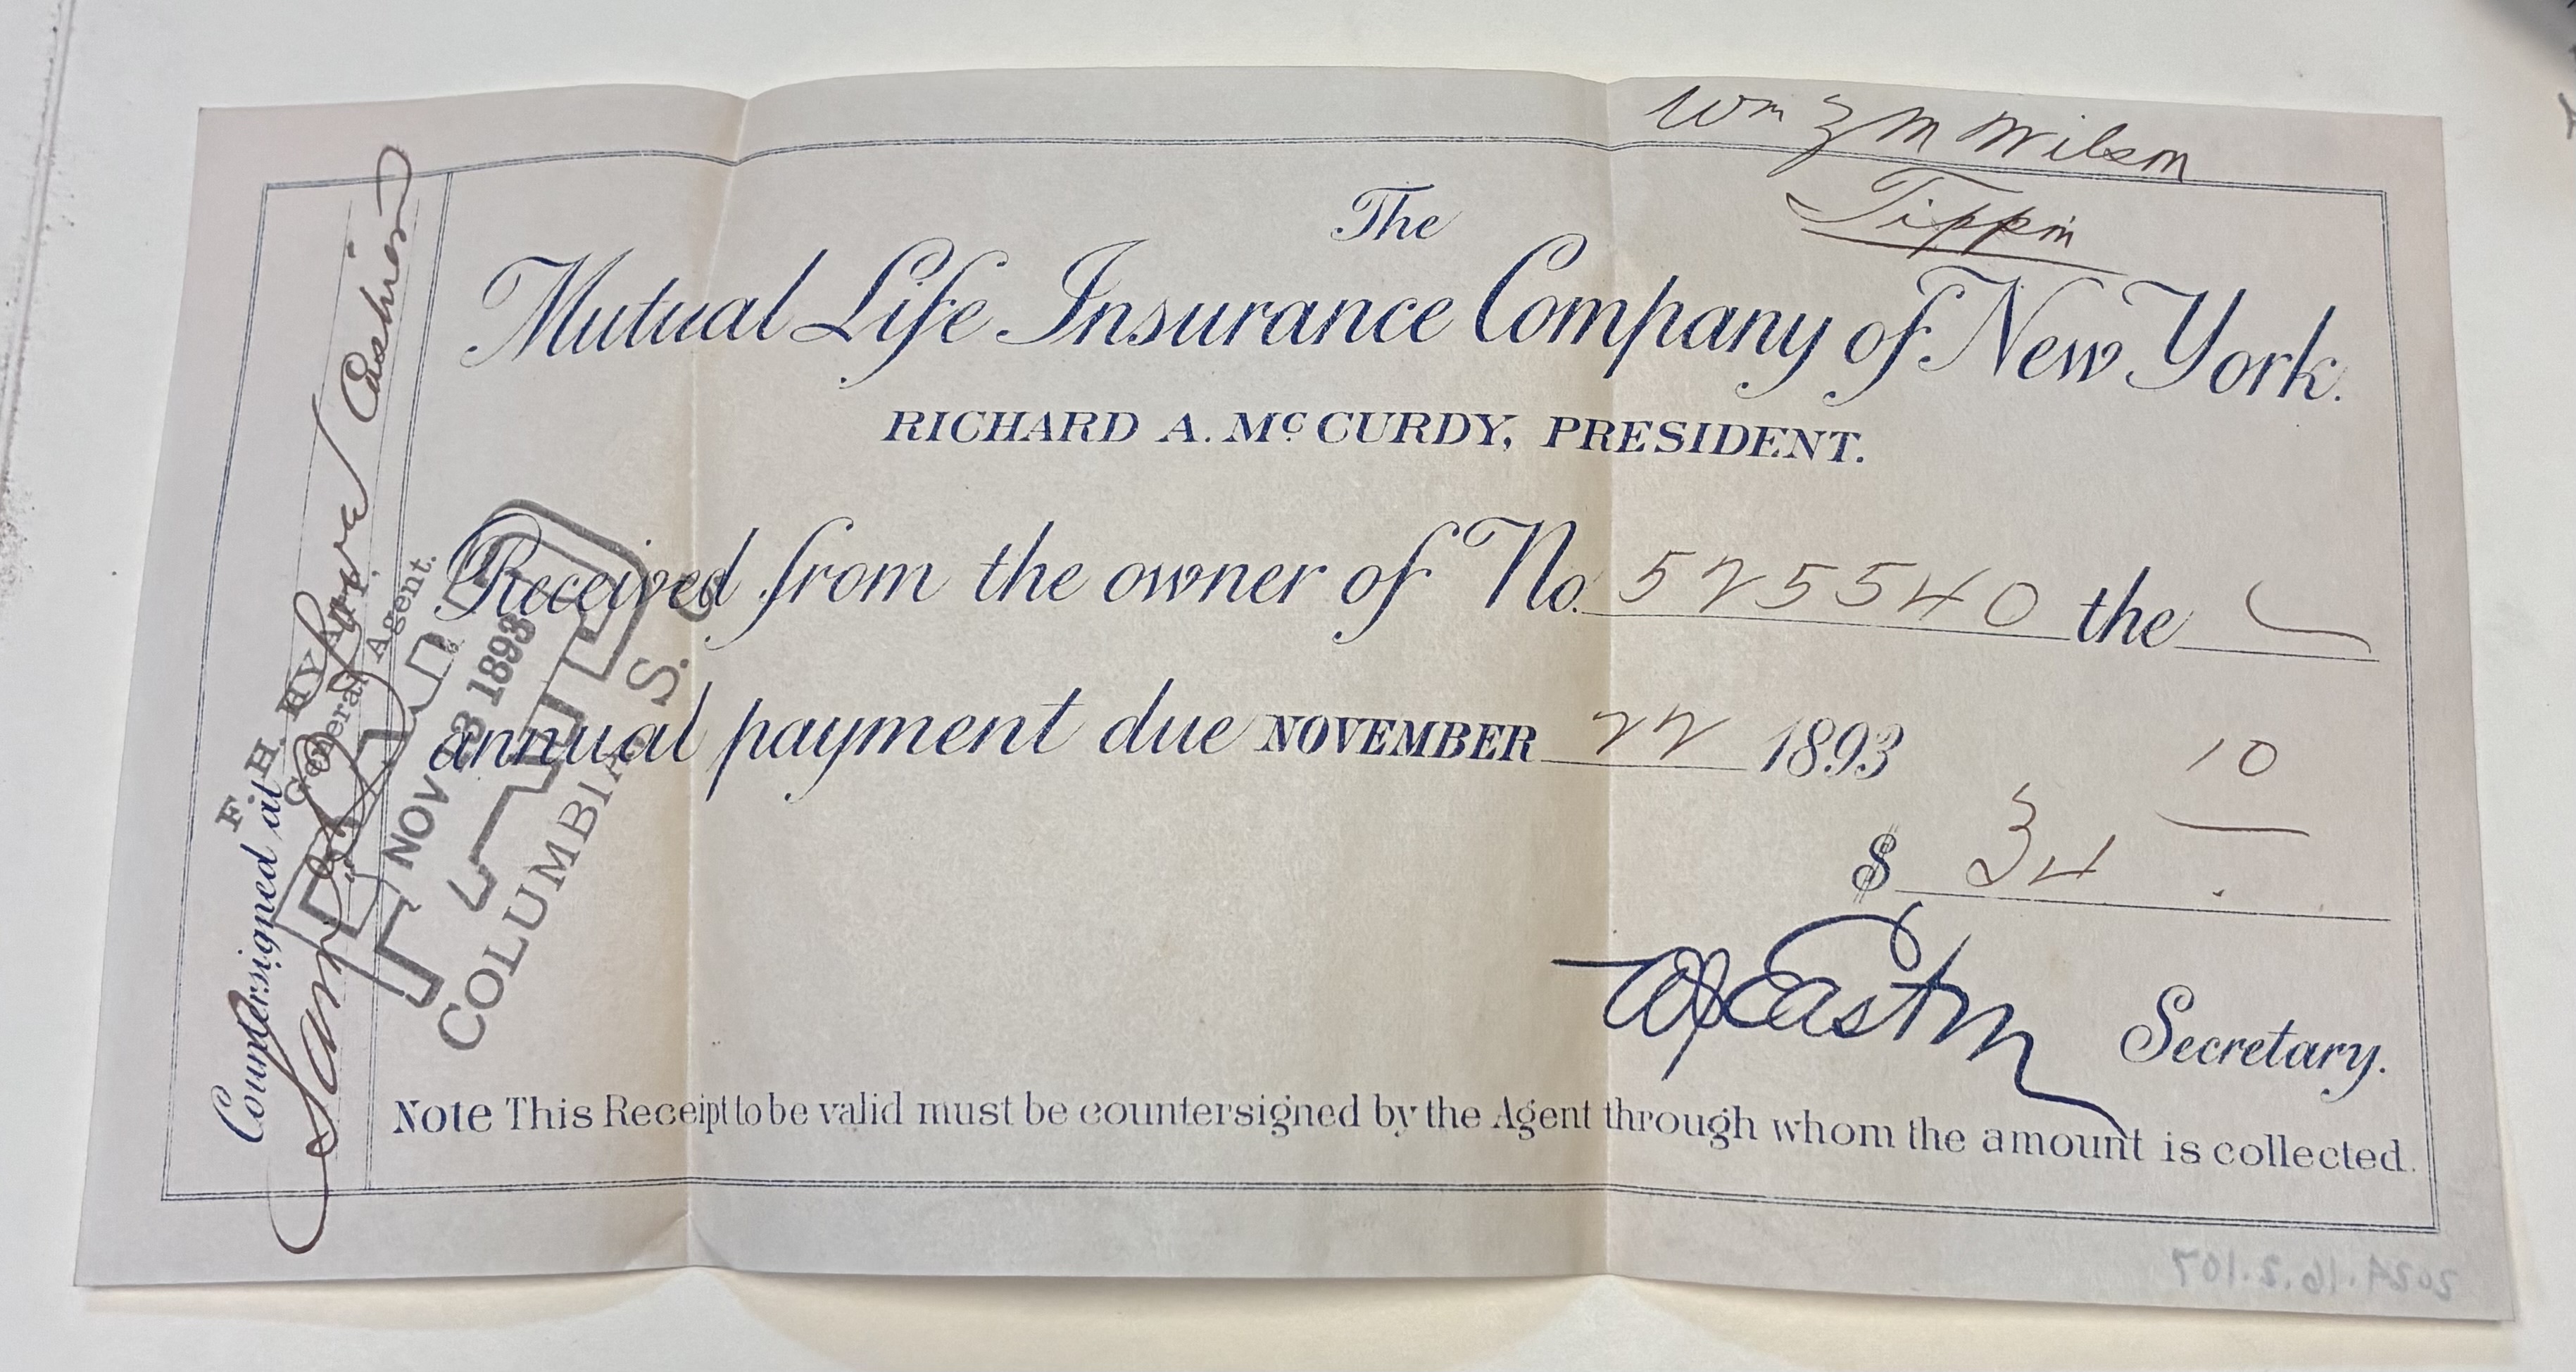 Wm Z M Wilson
Tippin
The
Mutual Life Insurance Company of New York.
RICHARD A. Mc CURDY, PRESIDENT.
Received from the owner of No. 525540 the
annual payment due NOVEMBER 22 1893
$ 34 10
WJEaston Secretary.
Note This Receipt to be valid must be countersigned by the Agent through whom the amount is collected.
Countersigned at
F. H. HYATT,
General Agent.
Cashier
PAID
NOV 13 1893
COLUMBIA S. C.
2024.16.2.107